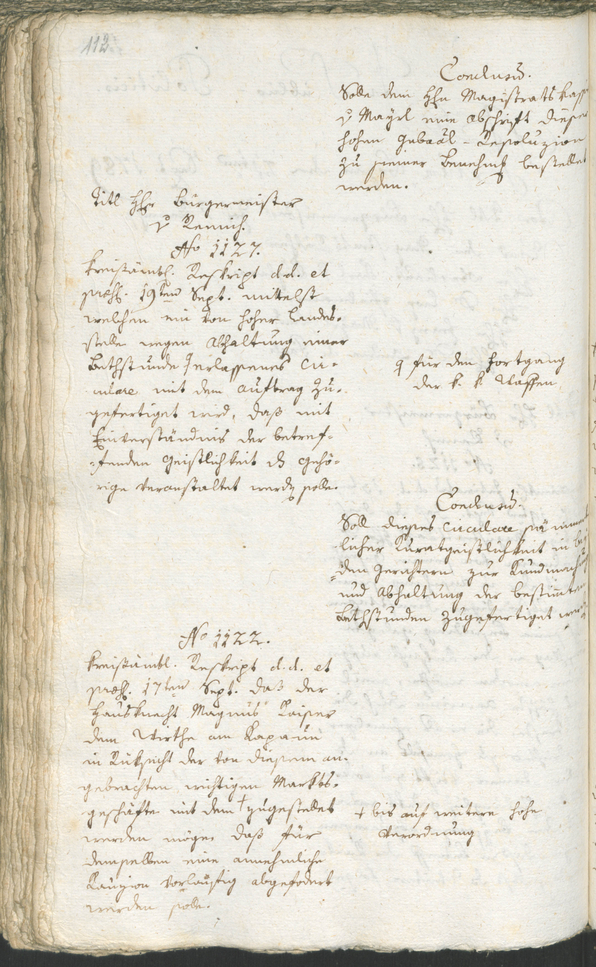 112
Conclusum.
Solle dem Hhn Magistratskass
v Mayrl eine Abschrift dieser
hohen Gubaäl-Resoluzion
zu seiner Benehmung bestellet
werden.
Titl Hhr Bürgermeister
v Remich.
No 1127.
Kreisämtl. Reskript d. d. et
præs. 19ten Sept. mittelst
welchen ein von hoher Landes-
stelle wegen Abhaltung einer
Bethstunde q erlassenes Cir-
culare mit dem Auftrag zu-
gefertiget wird, daß mit
Einverständnis der betref-
fenden Geistlichkeit das gehö-
rige veranstaltet werden solle.
q für den Fortgang
der k. k. Waffen
Conclusum.
Soll dieses Circulare samment-
licher Kuratgeistlichkeit in
den Gerichtern zur Kundmach
und Abhaltung der bestimten
Bethstunden zugefertiget werden
No 1122.
Kreisämtl. Reskript d. d. et
præs. 17ten Sept. daß der
Hausknecht Magnus Kaiser
dem Wirthe am Kapaun
in Rüksicht der von diesem an-
gebrachten wichtigen Markts-
geschäfte mit dem + zugestellet
werden möge, daß für
demselben eine annehmliche
Kauzion vorläufig abgefodert
werden solle.
+ bis auf weitere hohe
Verordnung